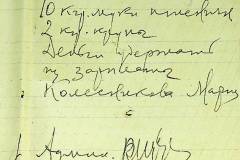 10 кгр. муки пшенич
2 кгр. крупа
Деньги удержать
из зарплаты
Колесникова Мария